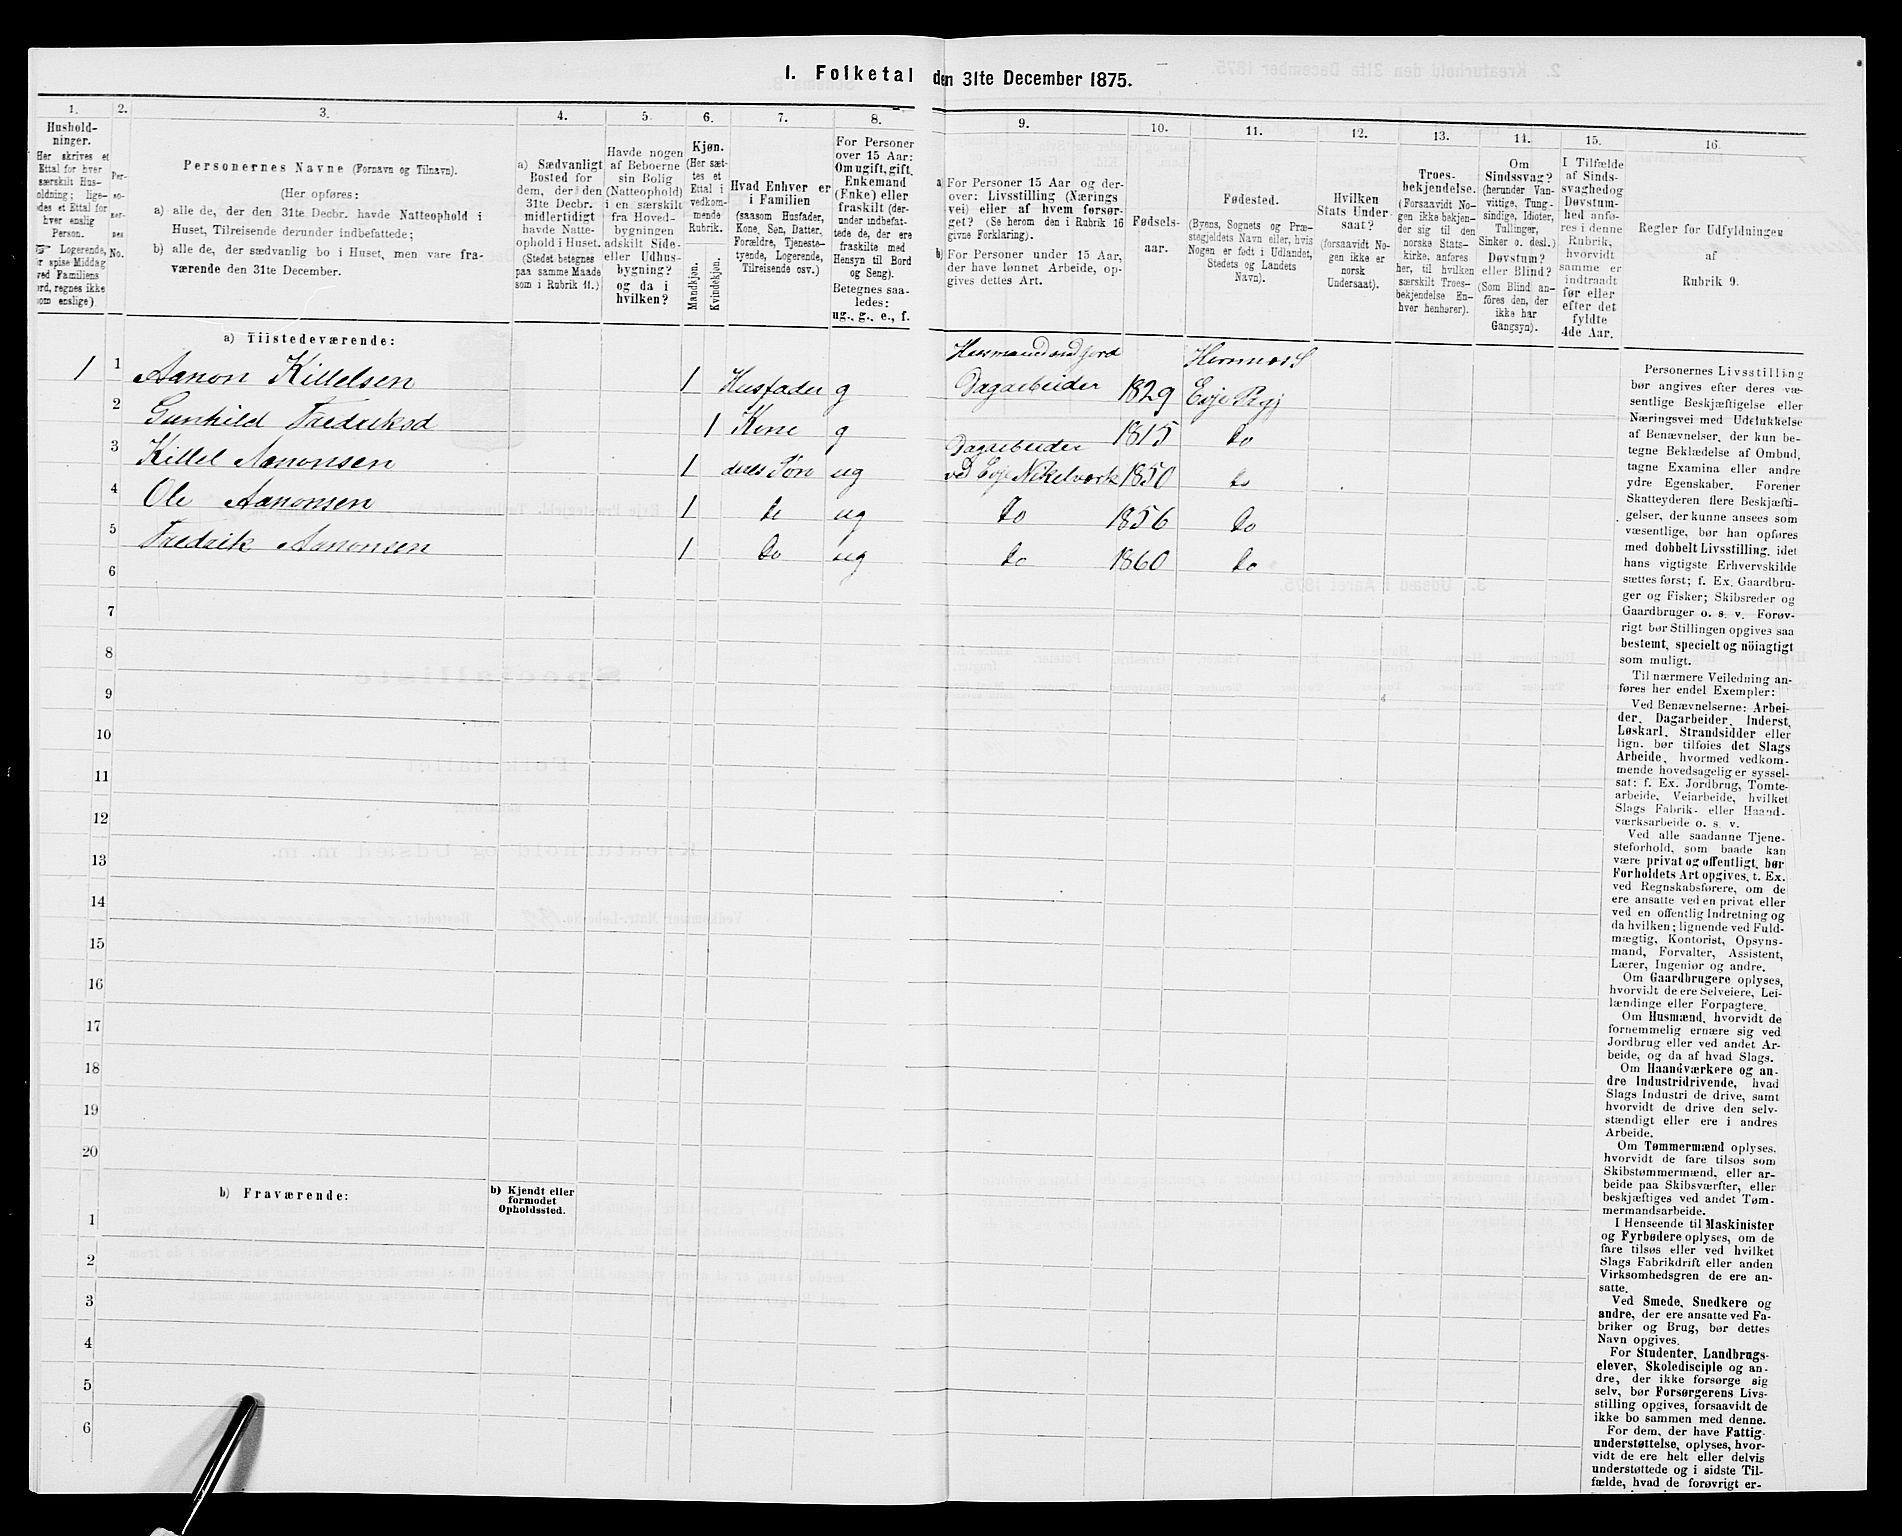 1. Folketal den 31te December 1875.
1. 2. 3. 4. 5. 6. 7. 8. 9. 10. 11. 12. 13. 14. 15. 16.
Hushold-
ninger.
Her skrives et
Ettal for hver
særskilt Hus-
oldning; lige-
des et Ettal for
hver enslig
Person.
Logerende,
er spise Middag
ved Familiens
ord, regnes ikke
om enslige)
Per-
so-
ner-
nes
No.
Personernes Navne (Fornavn og Tilnavn).
(Her opføres:
a) alle de, der den 31te Decbr. havde Natteophold i
Huset, Tilreisende derunder indbefattede;
b) alle de, der sædvanlig bo i Huset, men vare fra-
værende den 31te December.
a) Sædvanligt
Bosted for
dem, der den
31te Decbr.
midlertidigt
havde Natte-
ophold i Huset.
(Stedet betegnes
paa samme Maade
som i Rubrik 11.)
Havde nogen
af Beboerne
sin Bolig
(Natteophold)
i en særskilt
fra Hoved-
bygningen
adskilt Side-
eller Udhus-
bygning?
og da i
hvilken?
Kjøn.
(Her sæt-
tes et
Ettal i
vedkom-
mende
Rubrik.
Mandkjøn.
Kvindekjøn.
Hvad Enhver er
i Familien
(saasom Husfader,
Kone, Søn, Datter,
Forældre, Tjeneste-
tyende, Logerende,
Tilreisende osv.)
For Personer
over 15 Aar:
Om ugift, gift,
Enkemand
(Enke) eller
fraskilt (der-
under indbefat-
tede de, der ere
fraskilte med
Hensyn til Bord
og Seng).
Betegnes saa-
ledes:
ug., g., e., f.
a For Personer 15 Aar og der-
over: Livsstilling (Nærings
vei) eller af hvem forsør-
get? (Se herom den i Rubrik 16
givne Forklaring).
b) For Personer under 15 Aar,
der have lønnet Arbeide, op-
gives dettes Art.
Fødsels-
aar.
Fødested.
(Byens, Sognets og Præ-
stegjeldets Navn eller, hvis
Nogen er født i Udlandet,
Stedets og Landets
Navn).
Hvilken
Stats Under-
saat?
(forsaavidt No-
gen ikke er
norsk
Undersaat).
Troes-
bekjendelse.
(Forsaavidt No-
gen ikke bekjen-
der sig til den
norske Stats-
kirke, anføres
her, til hvilken
særskilt Troes-
bekjendelse En-
hver henhører).
Om
Sindssvag?
(herunder Van-
vittige, Tung-
sindige, Idioter,
Tullinger,
Sinker o. desl.)
Døvstum?
eller Blind?
(Som Blind an-
føres den, der
ikke har
Gangsyn).
I Tilfælde
af Sinds-
svaghed og
Døvstum-
hed anfø-
res i denne
Rubrik,
hvorvidt
samme er
indtraadt
før eller
efter det
fyldte
4de Aar.
Regler for Udfyldningen
af
Rubrik 9.
a) Tilstedeværende:
1 1 Aanon Killelsen 1 Husfader g Husmand med jord Dagarbeider 1829 Hornnes S Evje Prgj
2 Gunhild Fredriksd 1 Kone g 1815 do
3 Killel Aanonsen 1 deres Søn ug Dagarbeider ved Evje Nikelværk 1850 do
4 Ole Aanonsen 1 do ug do 1856 do
5 Fredrik Aanonsen 1 do ug do 1860 do
6
7
8
9
10
11
12
13
14
15
16
17
18
19
20
b) Fraværende:
b) Kjendt eller
formodet
Opholdssted.
1
2
3
4
5
6
Personernes Livsstilling
bør angives efter deres væ-
sentlige Beskjæftigelse eller
Næringsvei med Udelukkelse
af Benævnelser, der kun be-
tegne Beklædelse af Ombud,
tagne Examina eller andre
ydre Egenskaber. Forener
Skatteyderen flere Beskjæfti-
gelser, der kunne ansees som
væsentlige, bør han opføres
med dobbelt Livsstilling, idet
hans vigtigste Erhvervskilde
sættes først; f. Ex. Gaardbru-
ger og Fisker; Skibsreder og
Gaardbruger o. s. v. Forøv-
rigt bør Stillingen opgives saa
bestemt, specielt og nöiagtigt
som muligt.
Til nærmere Veiledning an-
føres her endel Exempler:
Ved Benævnelserne: Arbei-
der, Dagarbeider, Inderst,
Løskarl, Strandsidder eller
lign. bør tilføies det Slags
Arbeide, hvormed vedkom-
mende hovedsagelig er syssel-
sat; f. Ex. Jordbrug, Tomte-
arbeide, Veiarbeide, hvilket
Slags Fabrik- eller Haand-
værksarbeide o. s. v.
Ved alle saadanne Tjene-
steforhold, som baade kan
være privat og offentligt, bør
Forholdets Art opgives, t. Ex.
ved Regnskabsførere, om de
ere ansatte ved en privat eller
ved en offentlig Indretning og
da hvilken; lignende ved Fuld-
mægtig, Kontorist, Opsyns-
mand, Forvalter, Assistent,
Lærer, Ingeniør og andre.
Om Gaardbrugere oplyses,
hvorvidt de ere Selveiere, Lei-
lændinge eller Forpagtere.
Om Husmænd, hvorvidt de
fornemmelig ernære sig ved
Jordbrug eller ved andet Ar-
beide, og da af hvad Slags.
Om Haandværkere og an-
dre Industridrivende, hvad
Slags Industri de drive, samt
hvorvidt de drive den selv-
stændigt eller ere i andres
Arbeide.
Om Tømmermænd oplyses,
hvorvidt de fare tilsøs som
Skibstømmermænd, eller ar-
beide paa Skibsværfter, eller
beskjæftiges ved andet Tøm-
mermandsarbeide.
I Henseende til Maskinister
og Fyrbødere oplyses, om de
fare tilsøs eller ved hvilket
Slags Fabrikdrift eller anden
Virksomhedsgren de ere an-
satte.
Ved Smede, Snedkere og
andre, der ere ansatte ved Fa-
briker og Brug, bør dettes
Navn opgives.
For Studenter, Landbrugs-
elever, Skoledisciple og an-
dre, der ikke forsørge sig
selv, bør Forsørgerens Livs-
stilling opgives, forsaavidt de
ikke bo sammen med denne.
For dem, der have Fattig-
understøttelse, oplyses, hvor-
vidt de ere helt eller delvis
understøttede og i sidste Til-
fælde, hvad de forøvrigt er-